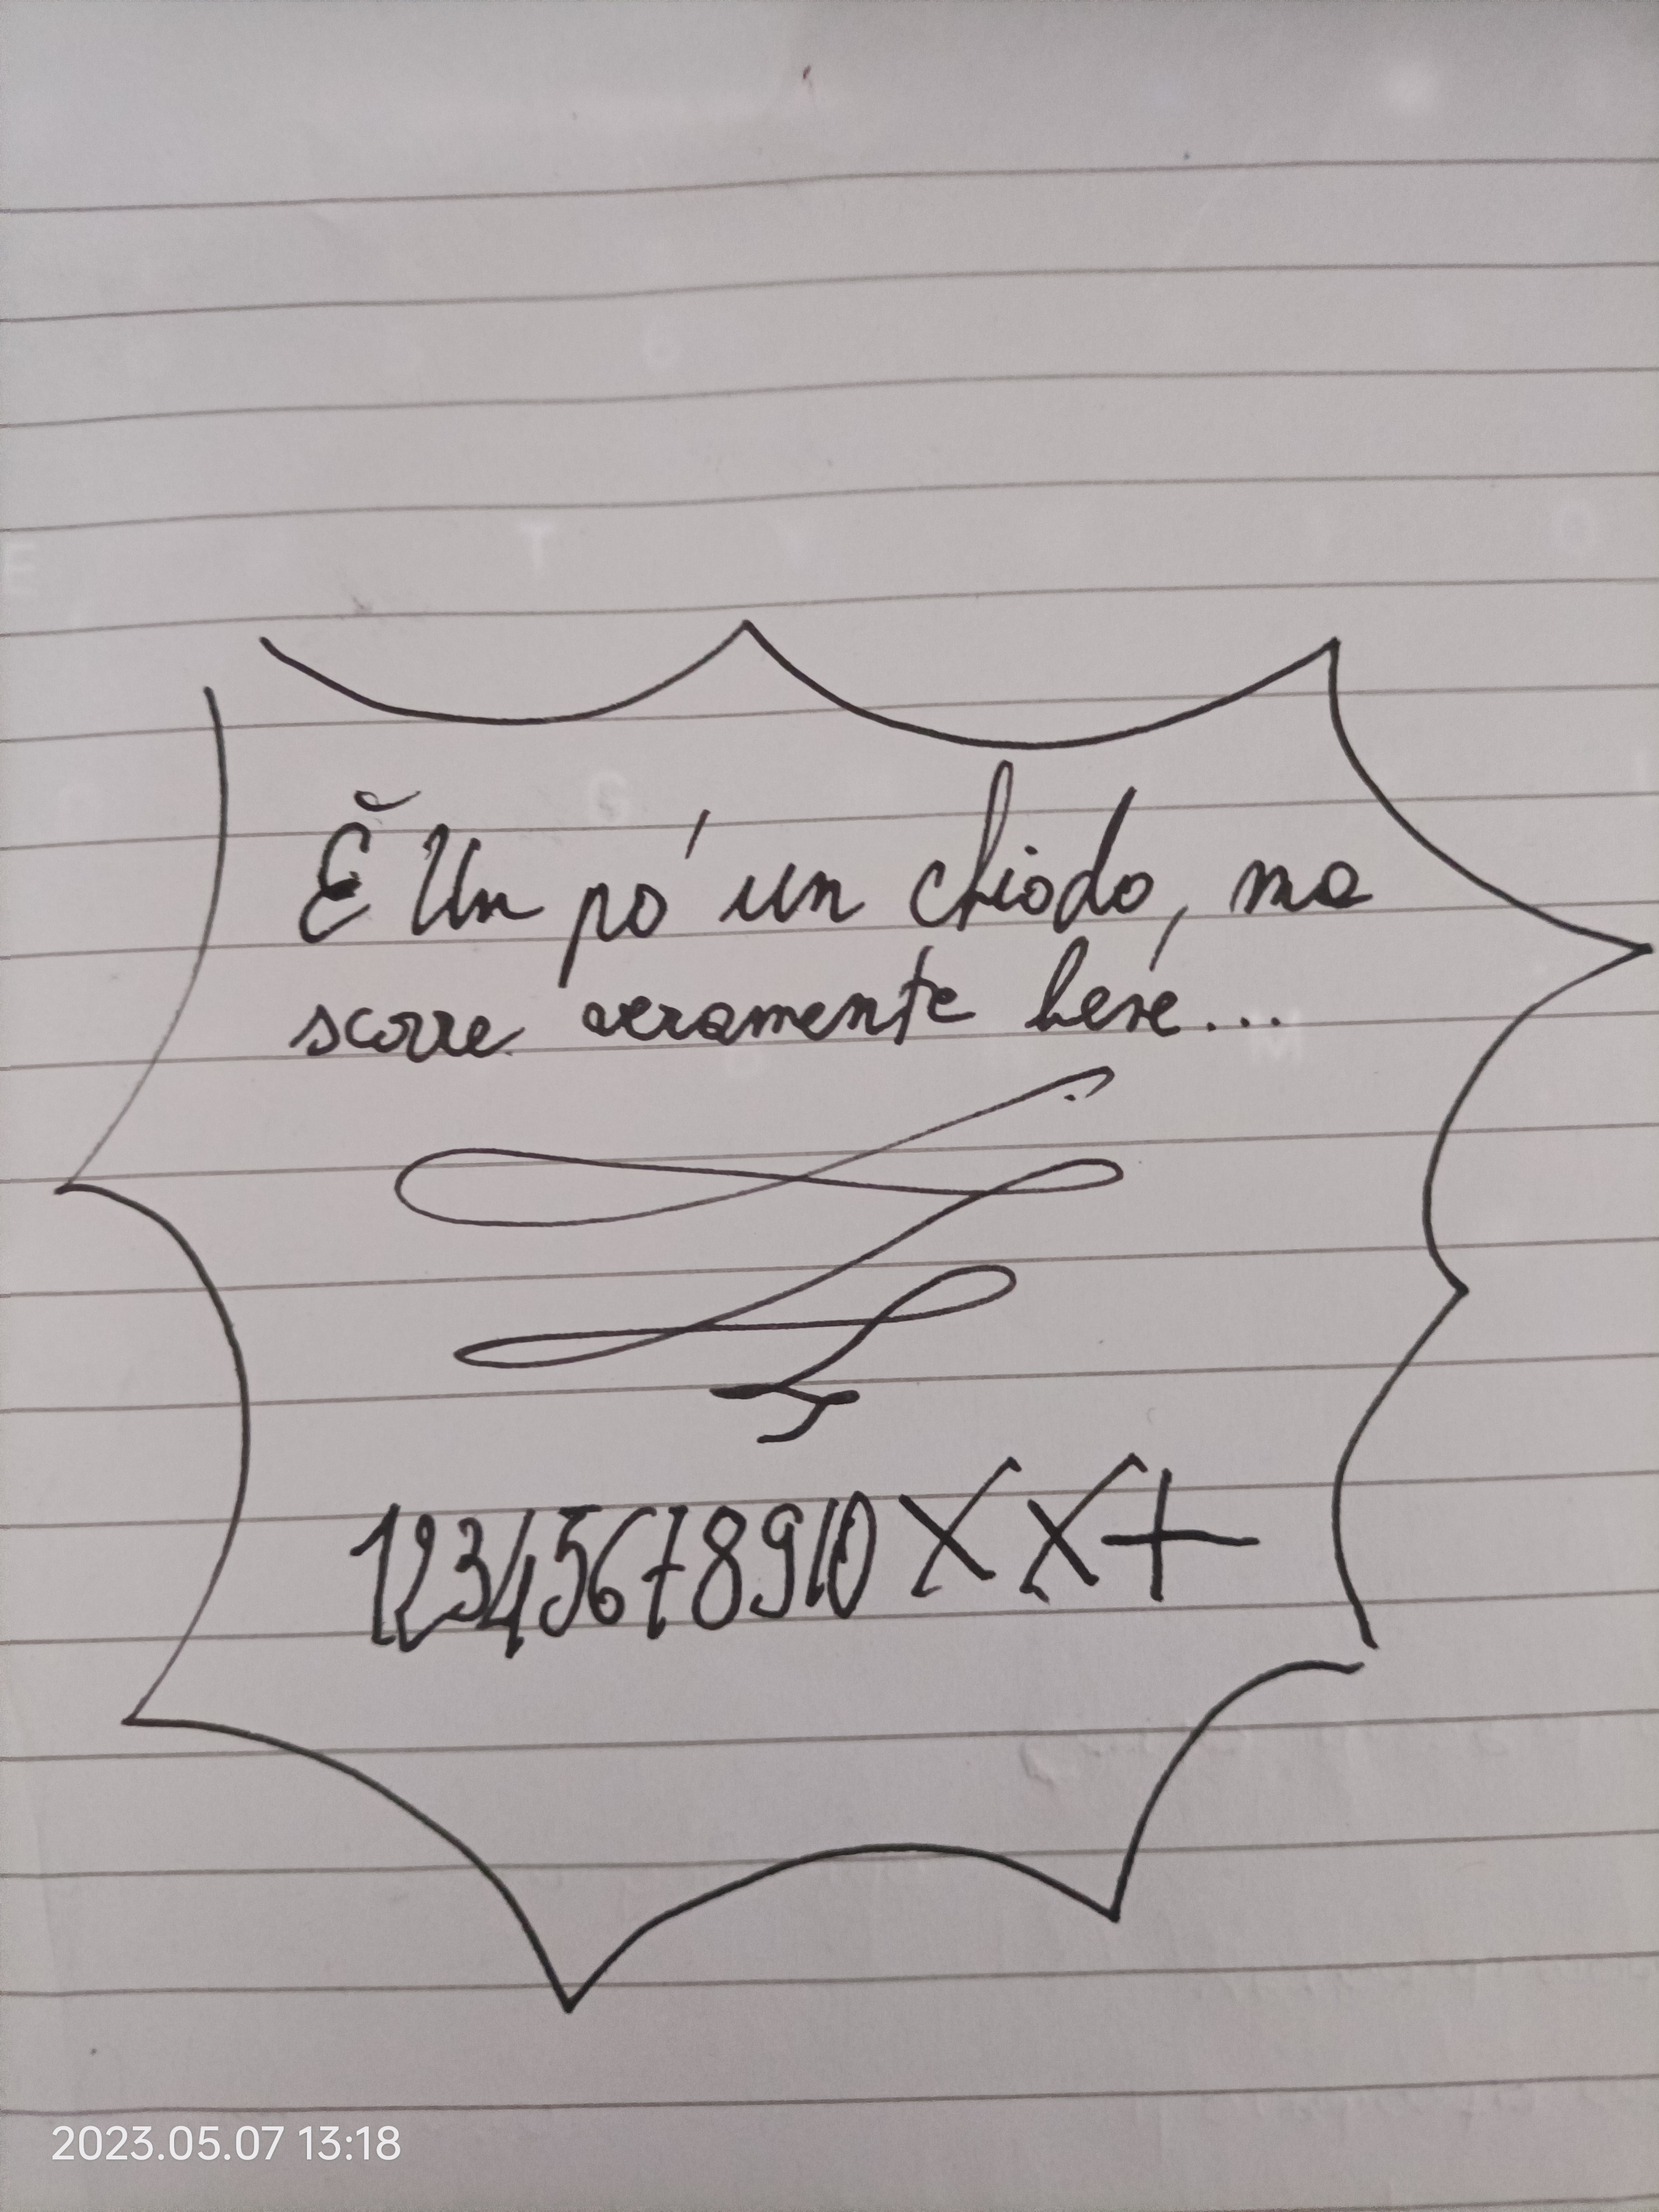 È Un pó un chiodo, ma
scorre veramente bene...
12345678910 X X +
2023.05.07 13:18